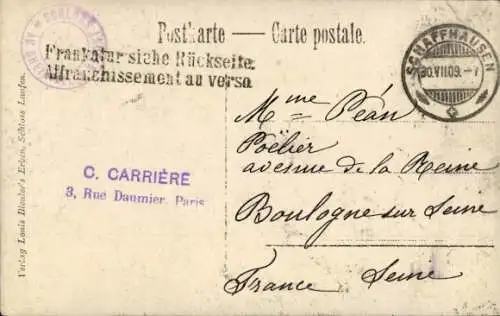 Postkarte — Carte postale.
Frankatur siehe Rückseite
Affranchissement au verso
SCHAFFHAUSEN
30.VII.09.-7
Mme Péan
Poëlier
avenue de la Reine
Boulogne sur Seine
France Seine
C. CARRIÈRE
3, Rue Daumier, Paris
Verlag Louis Bleuler's Erben, Schloss Laufen.
SCHLOSS